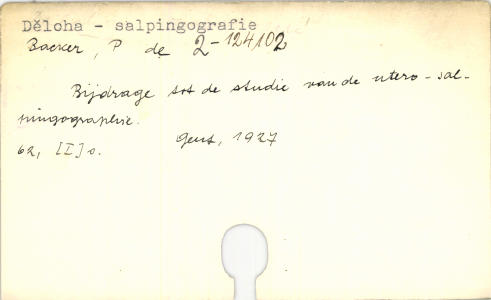 Děloha - salpingografie
Backer, P de 2-124102
Bijdrage tot de studie van de utero-sal-
pingographie.
62, [I] s. Gent, 1927